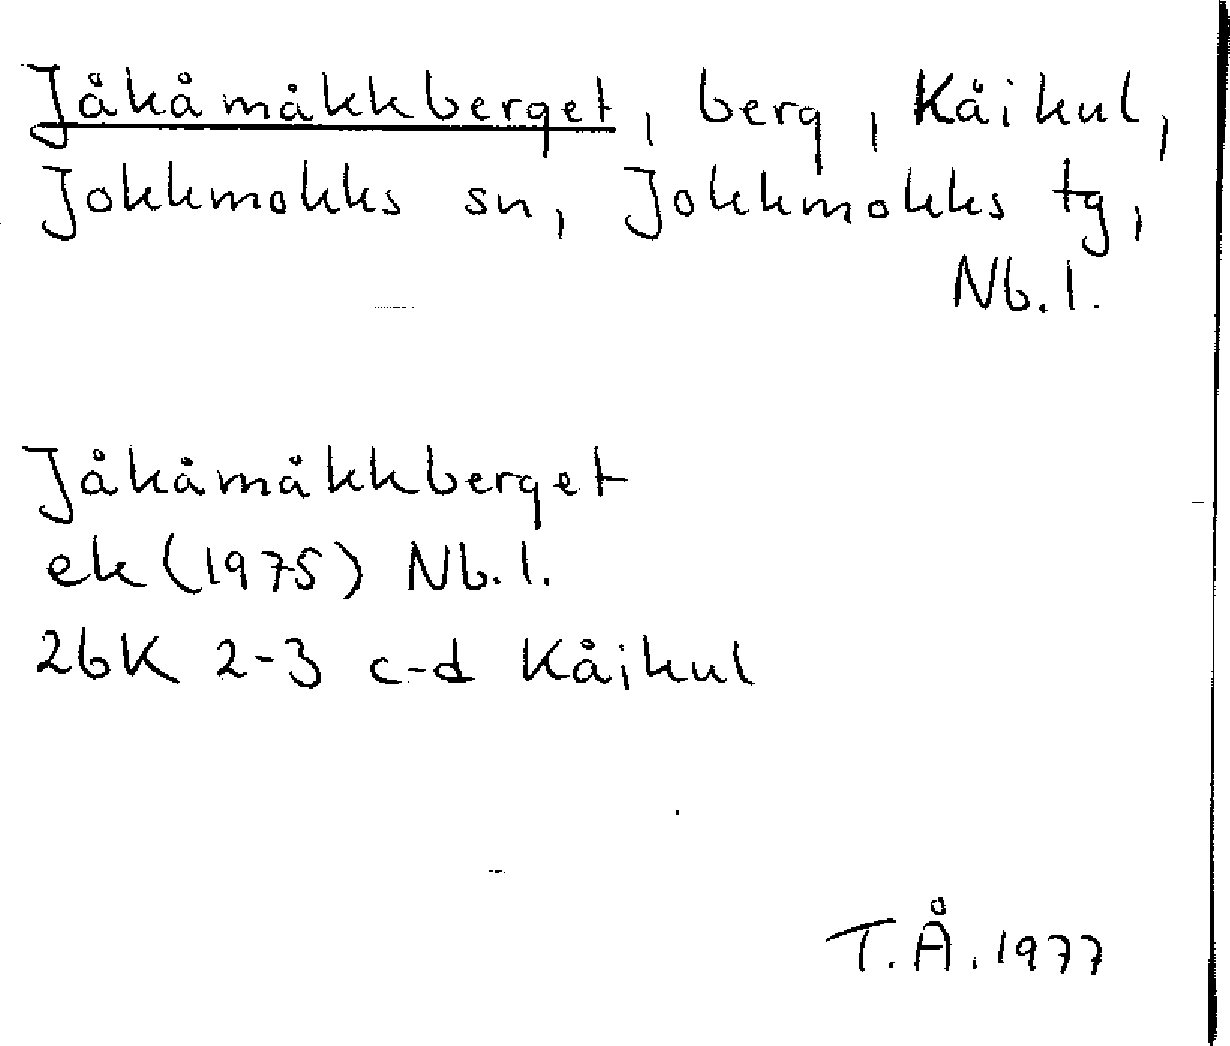 Jåkåmåkkberget, berg, Kåikul,
Jokkmokks sn, Jokkmokks tg,
Nb.l.
Jåkåmåkkberget
ek (1975) Nb.l.
26K 2-3 c-d Kåikul
T.Å. 1977